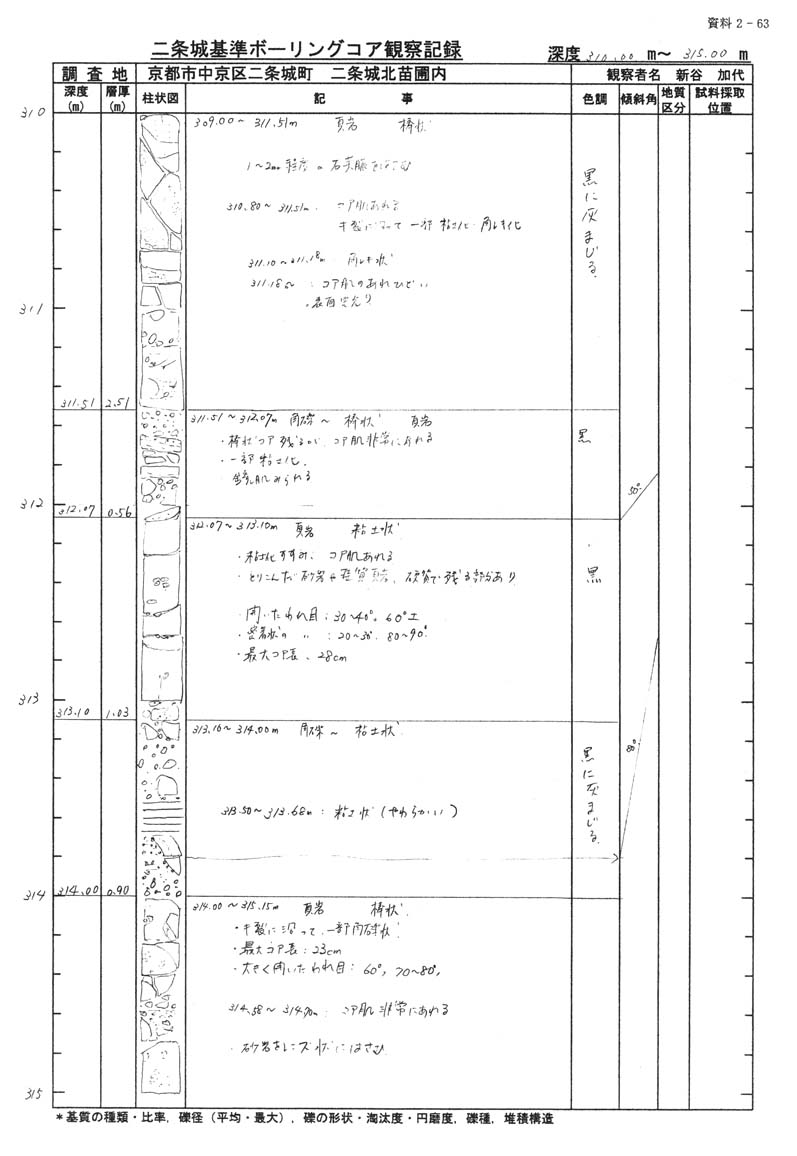 資料2-63
二条城基準ボーリングコア観察記録
深度 310.00 m～ 315.00 m
調査地 京都市中京区二条城町 二条城北苗圃内 観察者名 新谷 加代
深度(m) 層厚(m) 柱状図 記事 色調 傾斜角 地質区分 試料採取位置
310
309.00～311.51m 頁岩 棒状
1～2mm程度の石英脈をはさむ
黒に灰まじる
310.80～311.51m. コア肌あれる
キ裂に沿って一部粘土化・角レキ化
311.10～311.18m 角レキ状
311.18m～ : コア肌のあれひどい
311
311.51 2.51
311.51～312.07m 角礫～棒状 頁岩
・棒状コア残るが、コア肌非常にあれる
黒
・一部粘土化.
鏡肌みられる
50°
312
312.07 0.56
312.07～313.10m 頁岩 粘土状
・粘土化すすみ、コア肌あれる
・とりこんだ砂岩や珪質頁岩、硬質で残る部分あり
黒
・開いたわれ目:30～40°. 60°±
・密着状の 〃 :20～30°. 80～90°
・最大コア長、28cm
313
313.10 1.03
313.10～314.00m 角礫～粘土状
80°
黒に灰まじる
313.50～313.68m:粘土状(やわらかい)
314
314.00 0.90
314.00～315.15m 頁岩 棒状
・キ裂に沿って、一部角礫状
・最大コア長:23cm
・大きく開いたわれ目: 60°, 70～80°,
314.58～314.70m: コア肌非常にあれる
・砂岩をレンズ状にはさむ
315
*基質の種類・比率,礫径(平均・最大),礫の形状・淘汰度・円磨度,礫種,堆積構造